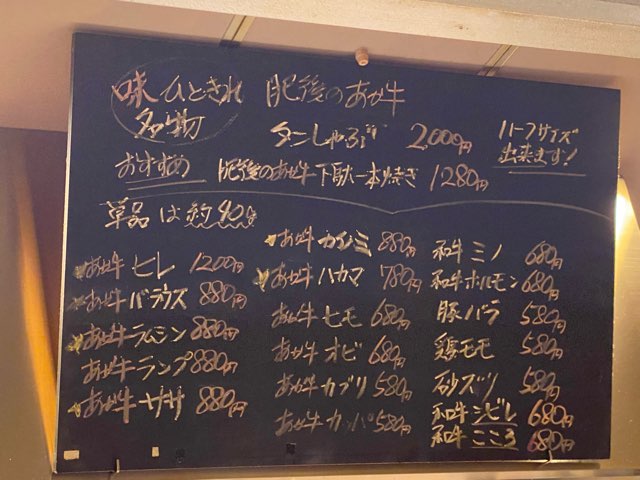 味ひときれ 肥後のあか牛
名物 タンしゃぶ 2,000円
ハーフサイズ
出来ます!
おすすめ 肥後のあか牛 下駄一本焼き 1280円
単品は約40g
あか牛 ヒレ 1200円
あか牛 880円
あか牛 ラムシン 880円
あか牛 ランプ 880円
あか牛 ササ 880円
あか牛 カイノミ 880円
あか牛 ハカマ 780円
あか牛 ヒモ 680円
あか牛 オビ 680円
あか牛 カブリ 580円
あか牛 カッパ 580円
和牛 ミノ 680円
和牛ホルモン 680円
豚バラ 580円
鶏モモ 580円
砂ズリ 580円
和牛 シビレ 680円
和牛 こころ 680円